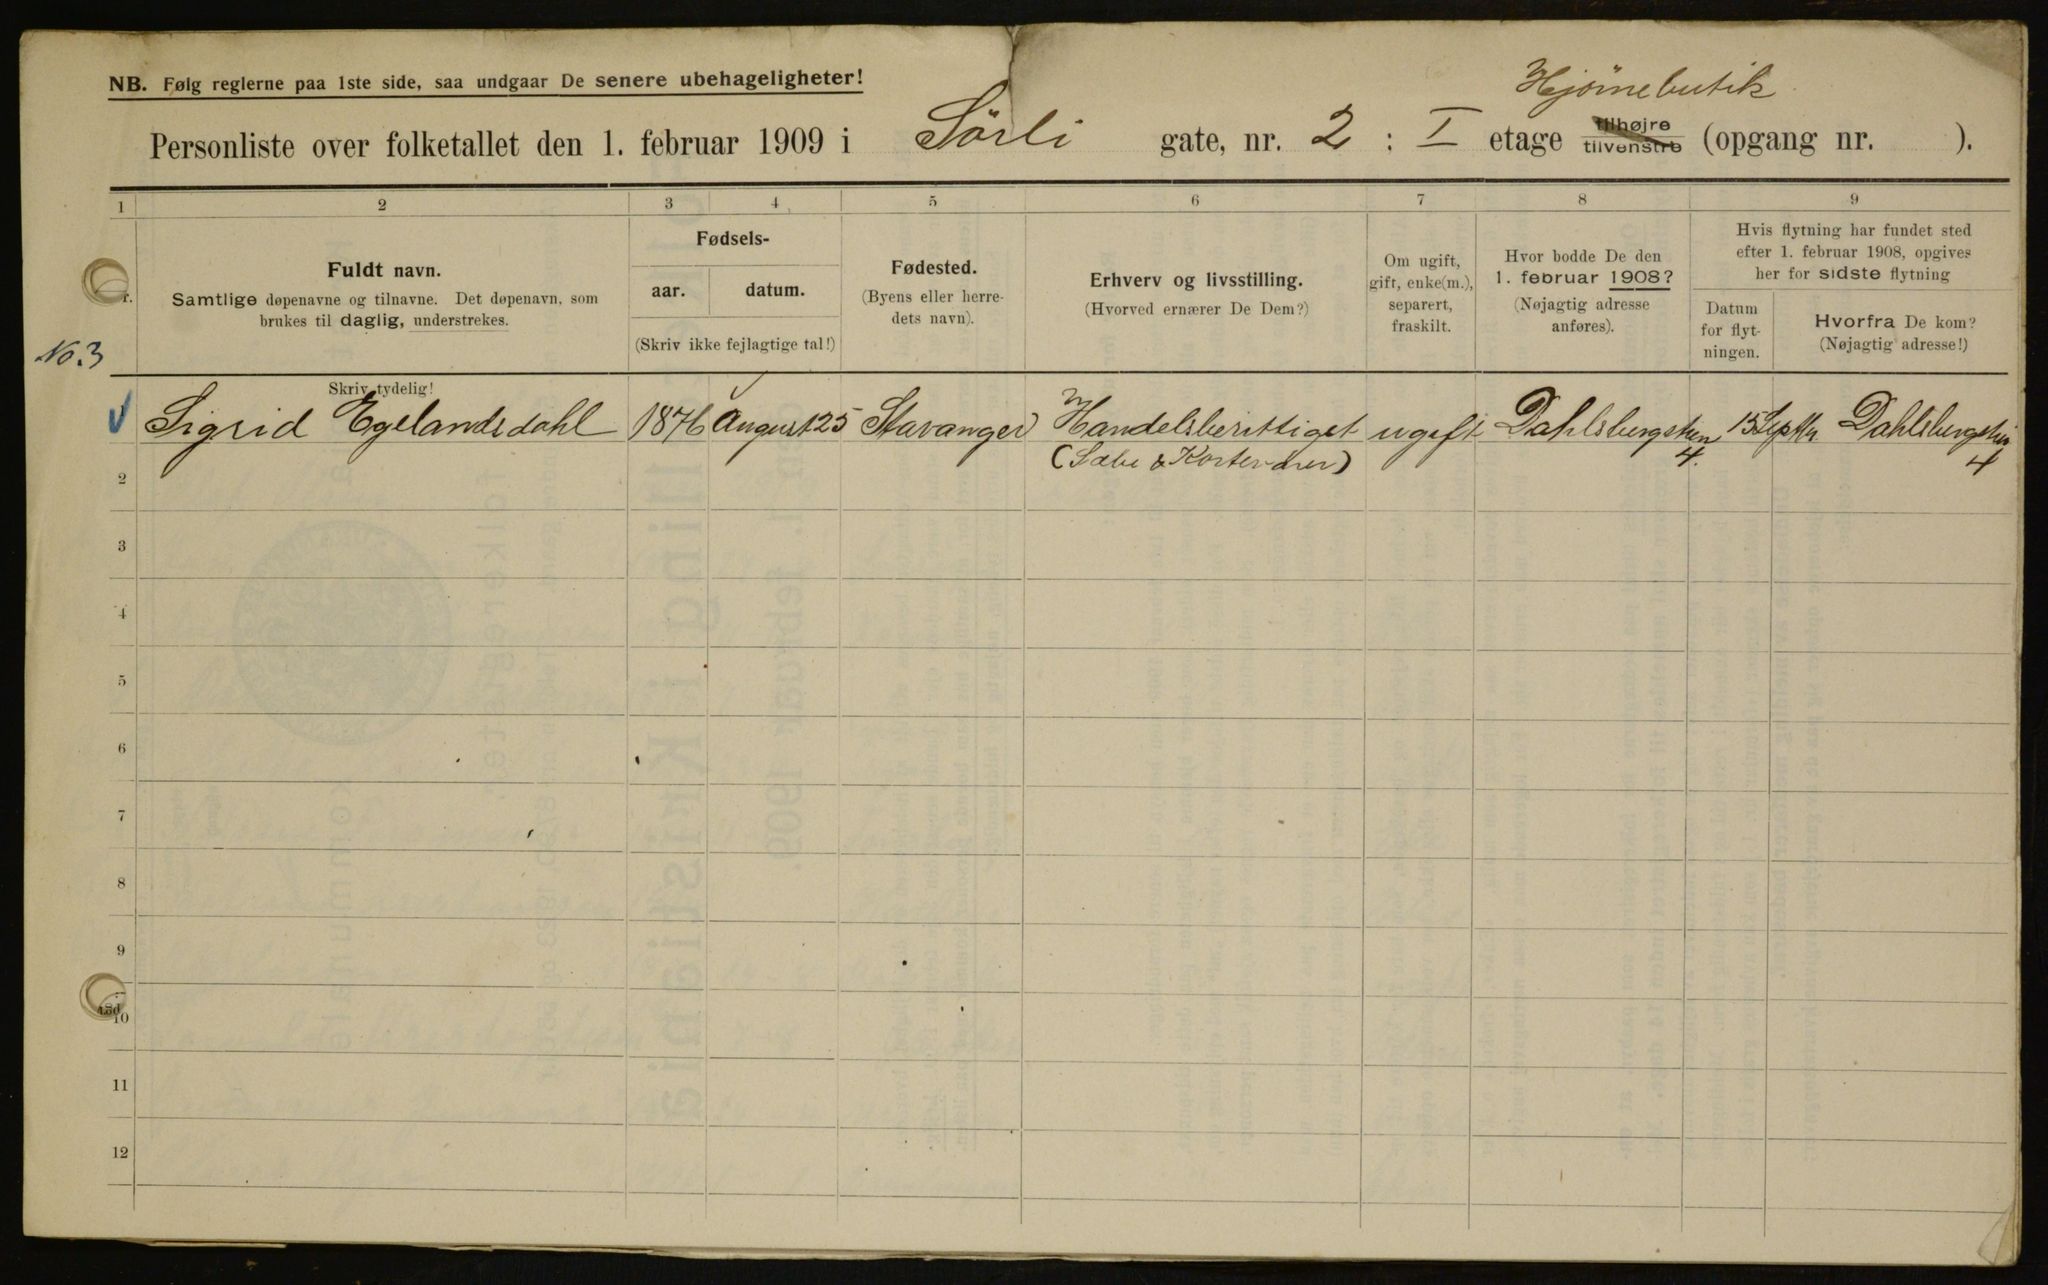 Hjørnebutik
NB. Følg reglerne paa 1ste side, saa undgaar De senere ubehageligheter!
Personliste over folketallet den 1. februar 1909 i Sörli gate, nr. 2 : I etage tilhøjre tilvenstre (opgang nr. ).
1 2 3 4 5 6 7 8 9
Fuldt navn.
Samtlige døpenavne og tilnavne. Det døpenavn, som
brukes til daglig, understrekes.
Skriv tydelig!
Fødsels-
aar. datum.
(Skriv ikke fejlagtige tal!)
Fødested.
(Byens eller herre-
dets navn).
Erhverv og livsstilling.
(Hvorved ernærer De Dem?)
Om ugift,
gift, enke(m.),
separert,
fraskilt.
Hvor bodde De den
1. februar 1908?
(Nøjagtig adresse
anføres).
Hvis flytning har fundet sted
efter 1. februar 1908, opgives
her for sidste flytning
Datum
for flyt-
ningen.
Hvorfra De kom?
(Nøjagtig adresse!)
No. 3
Sigrid Egelandsdahl 1876 August 25 Stavanger Handelsberettiget ugift Dahlsbergstien 4. 15 Septbr Dahlsbergstien 4
2
3
4
5
6
7
8
9
10
11
12